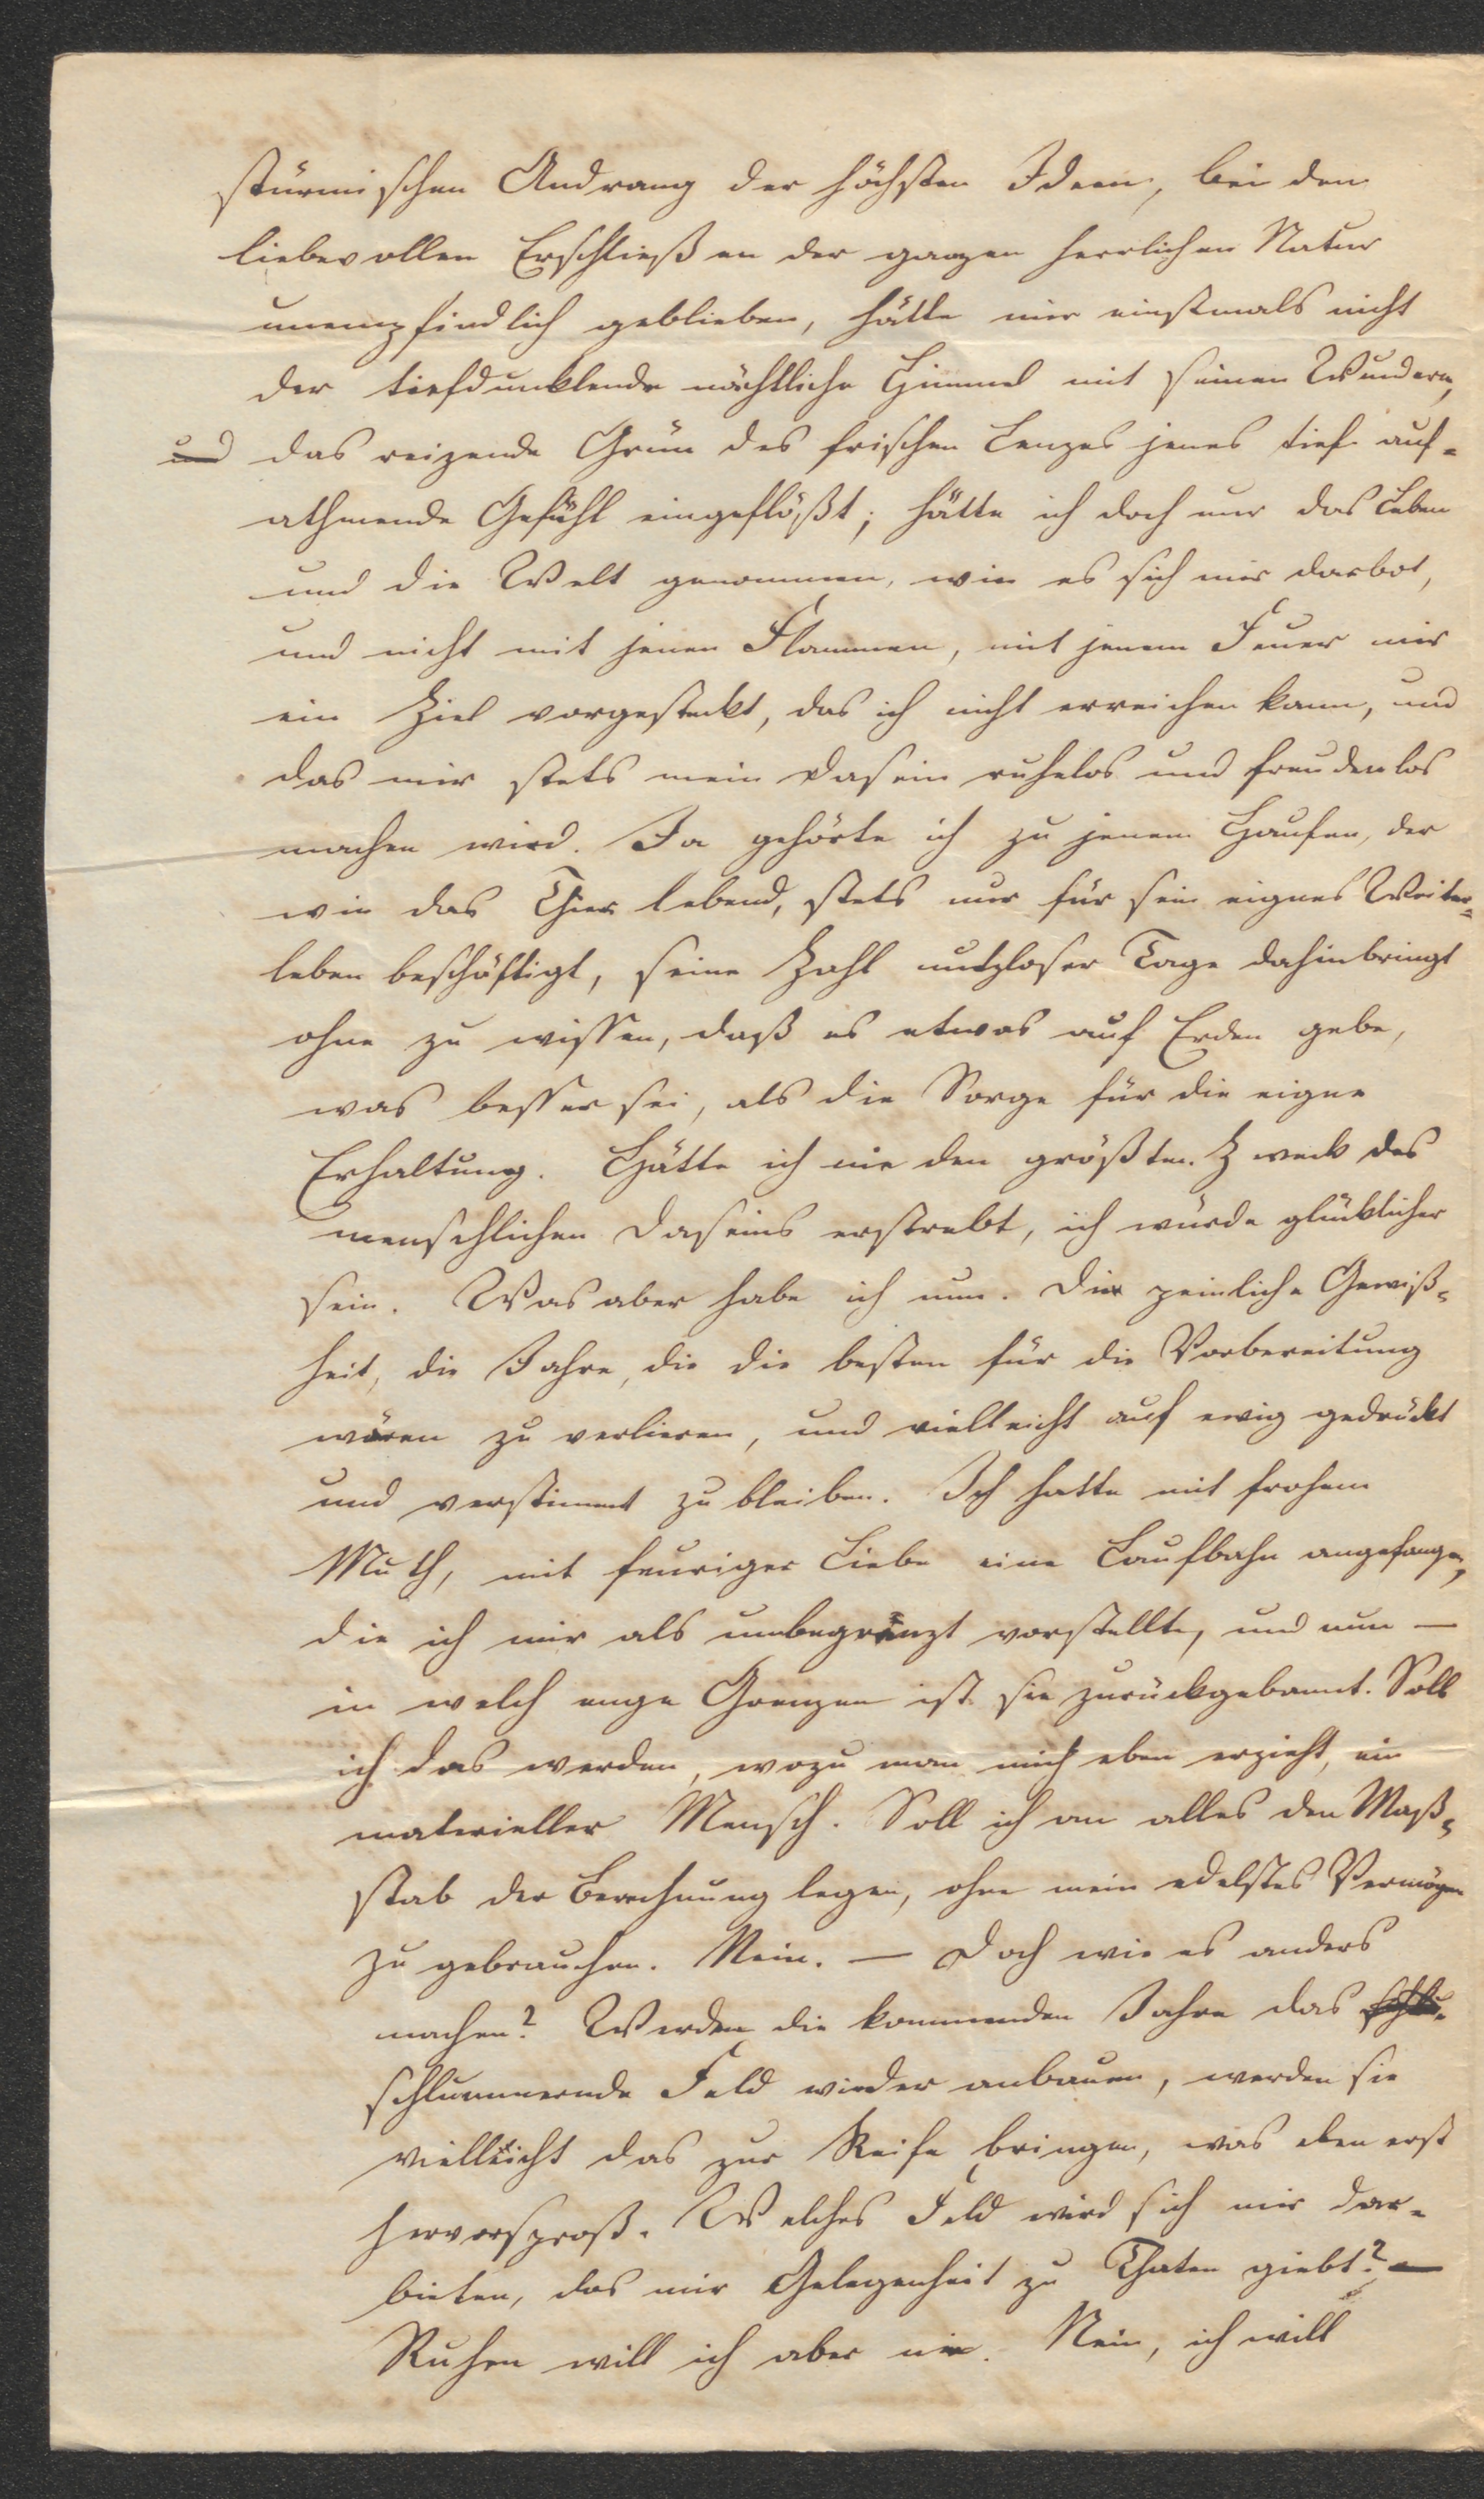 stürmischen Andrang der höchsten Ideen, bei dem
liebevollen Erschließen der ganzen herrlichen Natur
unempfindlich geblieben, hätte mir einstmals nicht
der tiefdunklende nächtliche Himmel mit seinen Wundern,
und das reizende Grün des frischen Lenzes jenes tief auf-
athmende Gefühl eingeflößt; hätte ich doch nur das Leben
und die Welt genommen, wie es sich mir darbot,
und nicht mit jenen Flammen, mit jenem Feuer mir
ein Ziel vorgesteckt, das ich nicht erreichen kann, und
das mir stets mein Dasein ruhelos und freudenlos
machen wird. Ja gehörte ich zu jenem Haufen, der
wie das Thier lebend, stets nur für sein eignes Weiter-
leben beschäftigt, seine Zahl nutzloser Tage dahinbringt
ohne zu wissen, daß es etwas auf Erden gebe,
was besser sei, als die Sorge für die eigne
Erhaltung. Hätte ich nie den größten Zweck des
menschlichen Daseins erstrebt, ich würde glücklicher
sein. Was aber habe ich nun. Die peinliche Gewiß-
heit, die Jahre, die die besten für die Vorbereitung
wären zu verlieren, und vielleicht auf ewig gedrückt
und verstimmt zu bleiben. Ich hatte mit frohem
Muth, mit feuriger Liebe eine Laufbahn angefangen,
die ich mir als unbegränzt vorstellte, und nun —
in welch enge Grenzen ist sie zurückgebannt. Soll
ich das werden, wozu man mich eben erzieht, ein
materieller Mensch. Soll ich an alles den Maß-
stab der Berechnung legen, ohne mein edelstes Vermögen
zu gebrauchen. Nein. — Doch wie es anders
machen? Werden die kommenden Jahre das
schlummernde Feld wieder anbauen, werden sie
vielleicht das zur Reife bringen, was eben erst
hervorsproß. Welches Feld wird sich mir dar-
bieten, das mir Gelegenheit zu Thaten giebt? —
Ruhen will ich aber nie. Nein, ich will